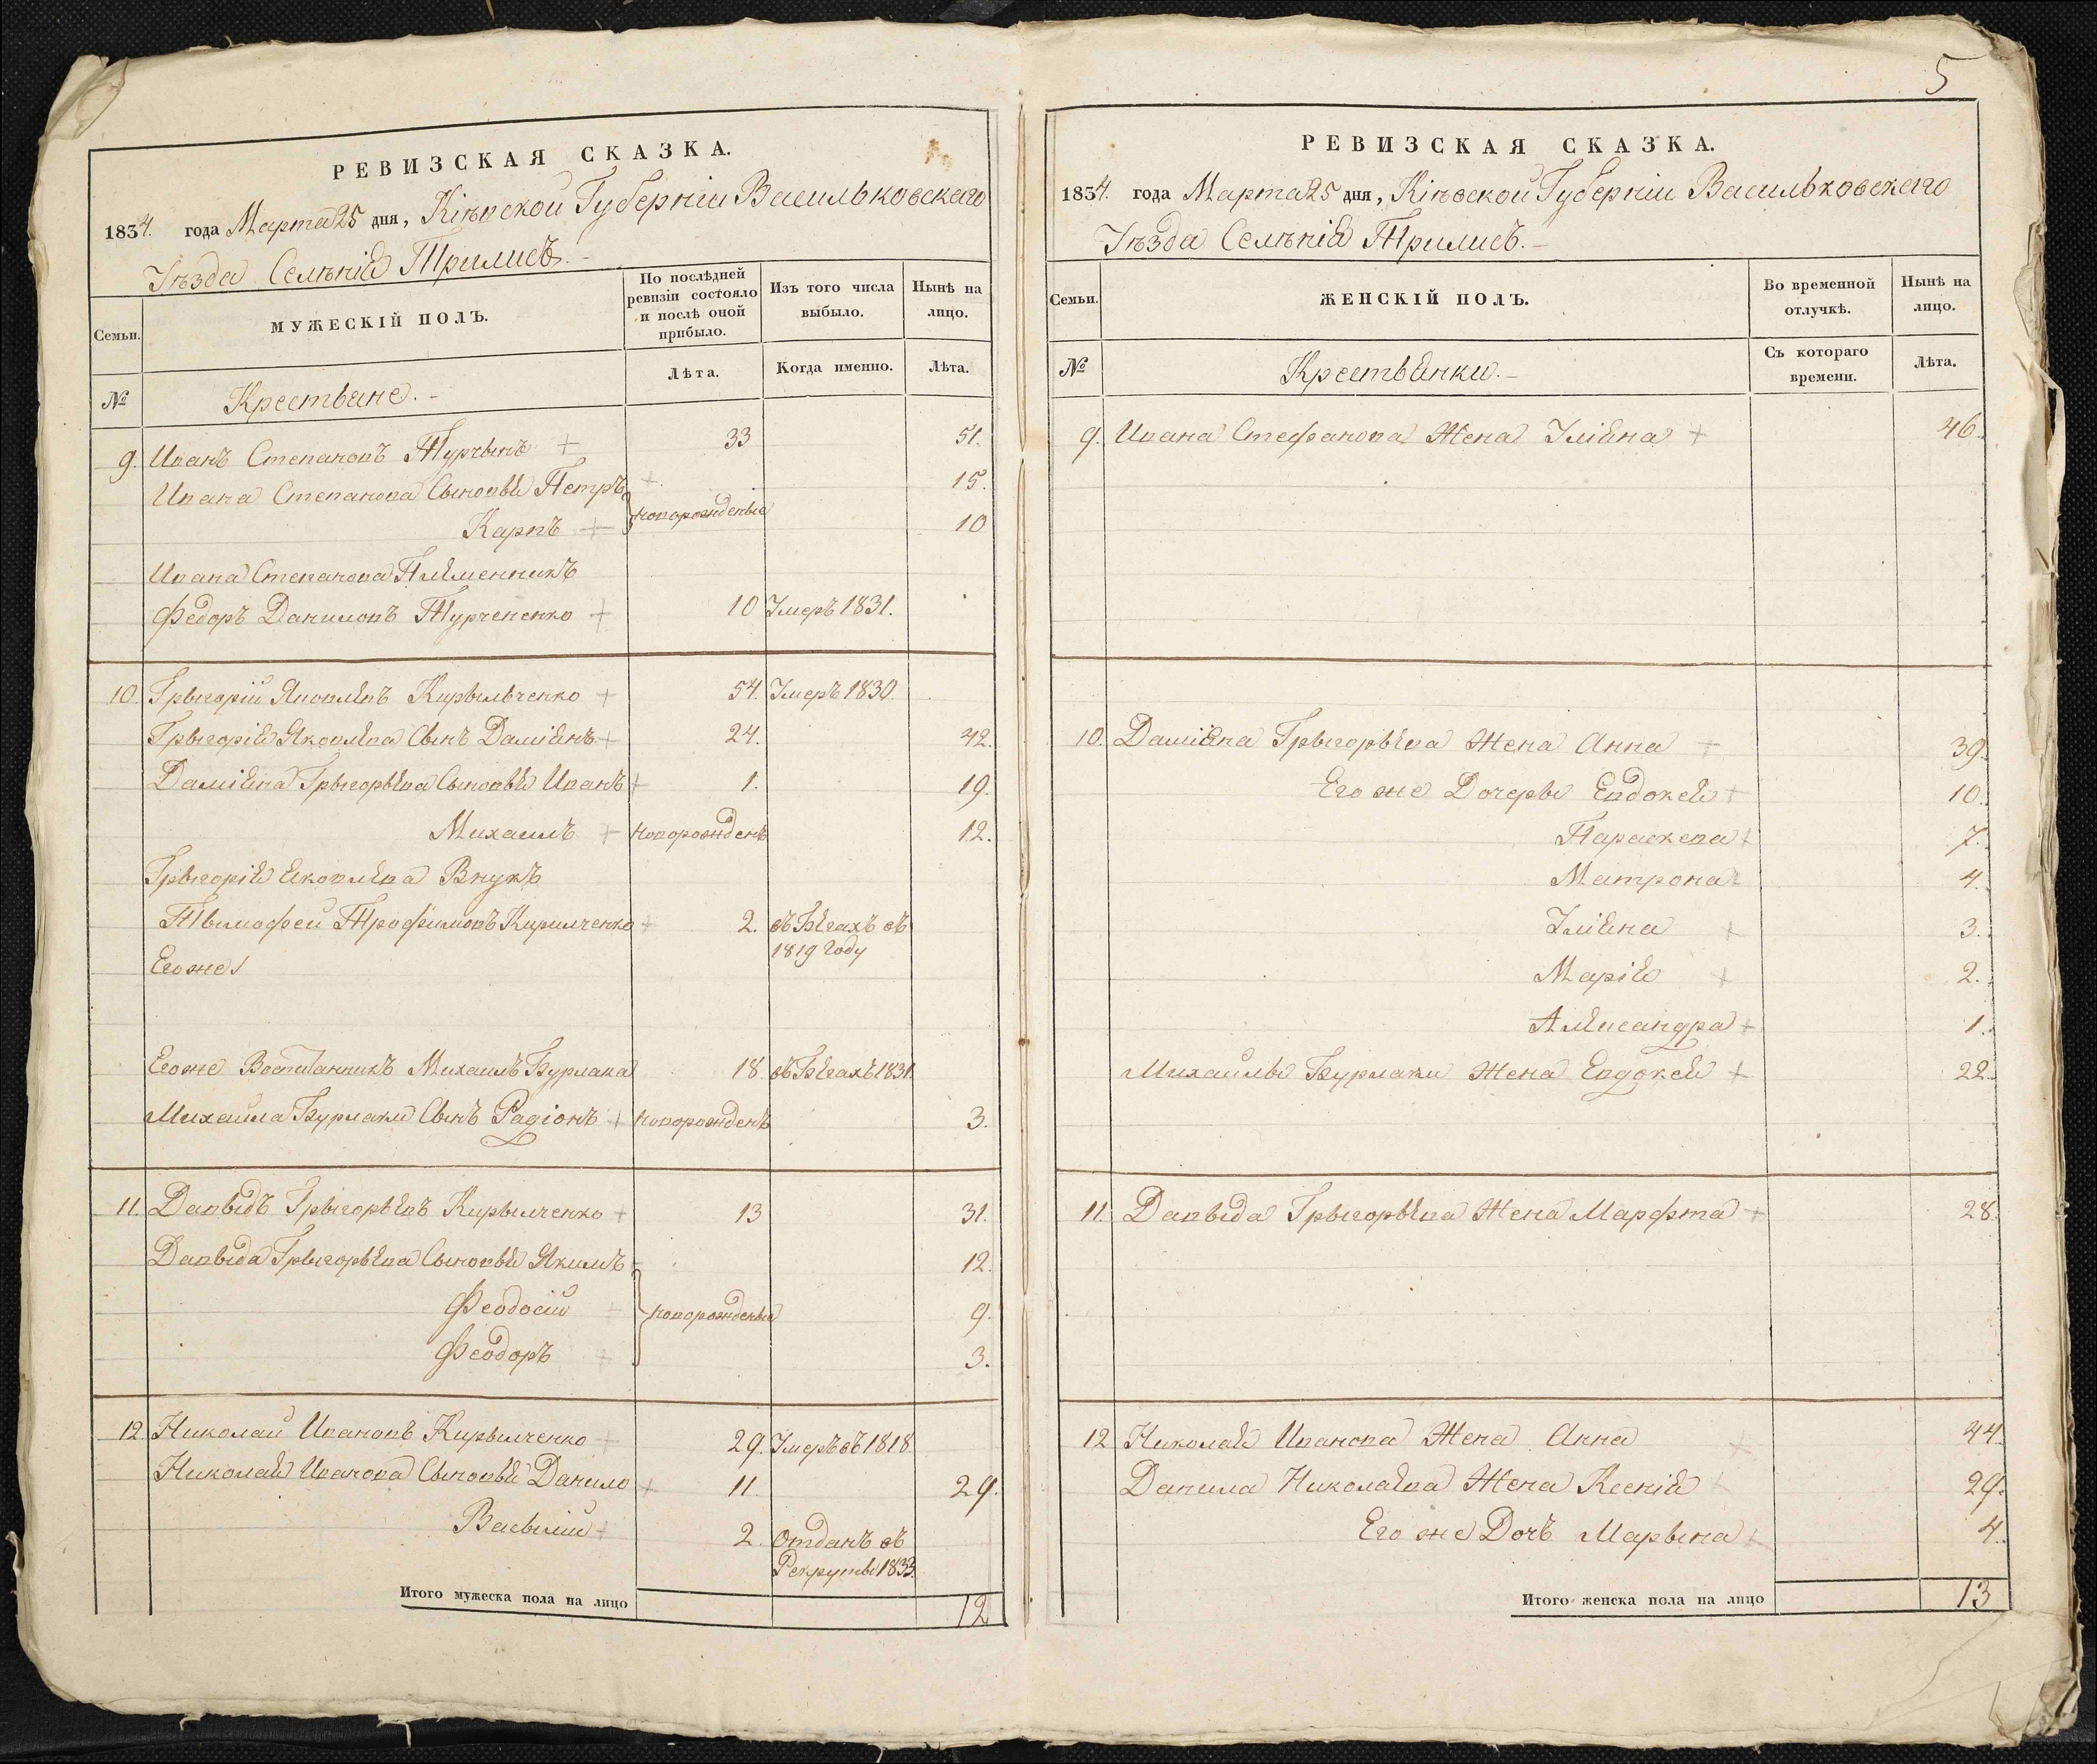 5
РЕВИЗСКАЯ СКАЗКА.
1834. года Марта 25 дня, Кіевской Губерніи Васильковскаго
Уѣзда Селѣнія Трилисъ.
Семьи.
МУЖЕСКІЙ ПОЛЪ.
По послѣдней ревизіи состояло и послѣ оной прибыло.
Изъ того числа выбыло.
Нынѣ на лицо.
№
Крестьяне.
Лѣта.
Когда именно.
Лѣта.
9. Иванъ Степановъ Турчынъ + 33 51.
Ивана Степанова Сыновья Петръ + 15.
новорожденые
Карпъ + 10
Ивана Степанова Племенникъ
Федоръ Даниловъ Турчененко + 10 Умеръ 1831.
10. Грыгорій Яковлевъ Кирыльченко + 54. Умеръ 1830.
Грыгорія Яковлева Сынъ Даміянъ + 24. 42.
Даміяна Грыгорьева Сыновья Иванъ + 1. 19.
Михаилъ + новорожденъ 12.
Грыгорія Яковлева Внукъ
Тымофей Трофимовъ Кирилченко + 2. въ Бегахъ въ
1819 году
Егоже
Егоже Воспитанникъ Михаилъ Бурлака 18. въ Бегахъ 1831.
Михаила Бурлаки Сынъ Радіонъ + новорожденъ 3.
11. Давыдъ Грыгорьевъ Кирылченко + 13 31.
Давыда Грыгорьева Сыновья Якимъ 12.
Феодосій + новорожденыя 9.
Феодоръ + 3.
12. Николай Ивановъ Кирылченко + 29. Умеръ въ 1818
Николая Иванова Сыновья Данило + 11. 29.
Васылій + 2. Отданъ въ
Рекруты 1833.
Итого мужеска пола на лицо 12
РЕВИЗСКАЯ СКАЗКА.
1834. года Марта 25 дня, Кіевской Губерніи Васильковскаго
Уѣзда Селѣнія Трилисъ.
Семьи.
ЖЕНСКІЙ ПОЛЪ.
Во временной отлучкѣ.
Нынѣ на лицо.
№
Крестьянки.
Съ котораго времени.
Лѣта.
9. Ивана Стефанова Жена Уліяна + 46.
10. Даміяна Грыгорьева Жена Анна + 39.
Его же Дочеры Евдокея + 10.
Параскева + 7.
Матрона + 4.
Уліяна + 3.
Марія + 2.
Александра + 1.
Михайлы Бурлаки Жена Евдокея + 22.
11. Давыда Грыгорьева Жена Марфта + 28.
12 Николая Иванова Жена Анна + 44.
Данила Николаева Жена Ксенія + 29.
Его же Дочъ Марына + 4.
Итого женска пола на лицо 13